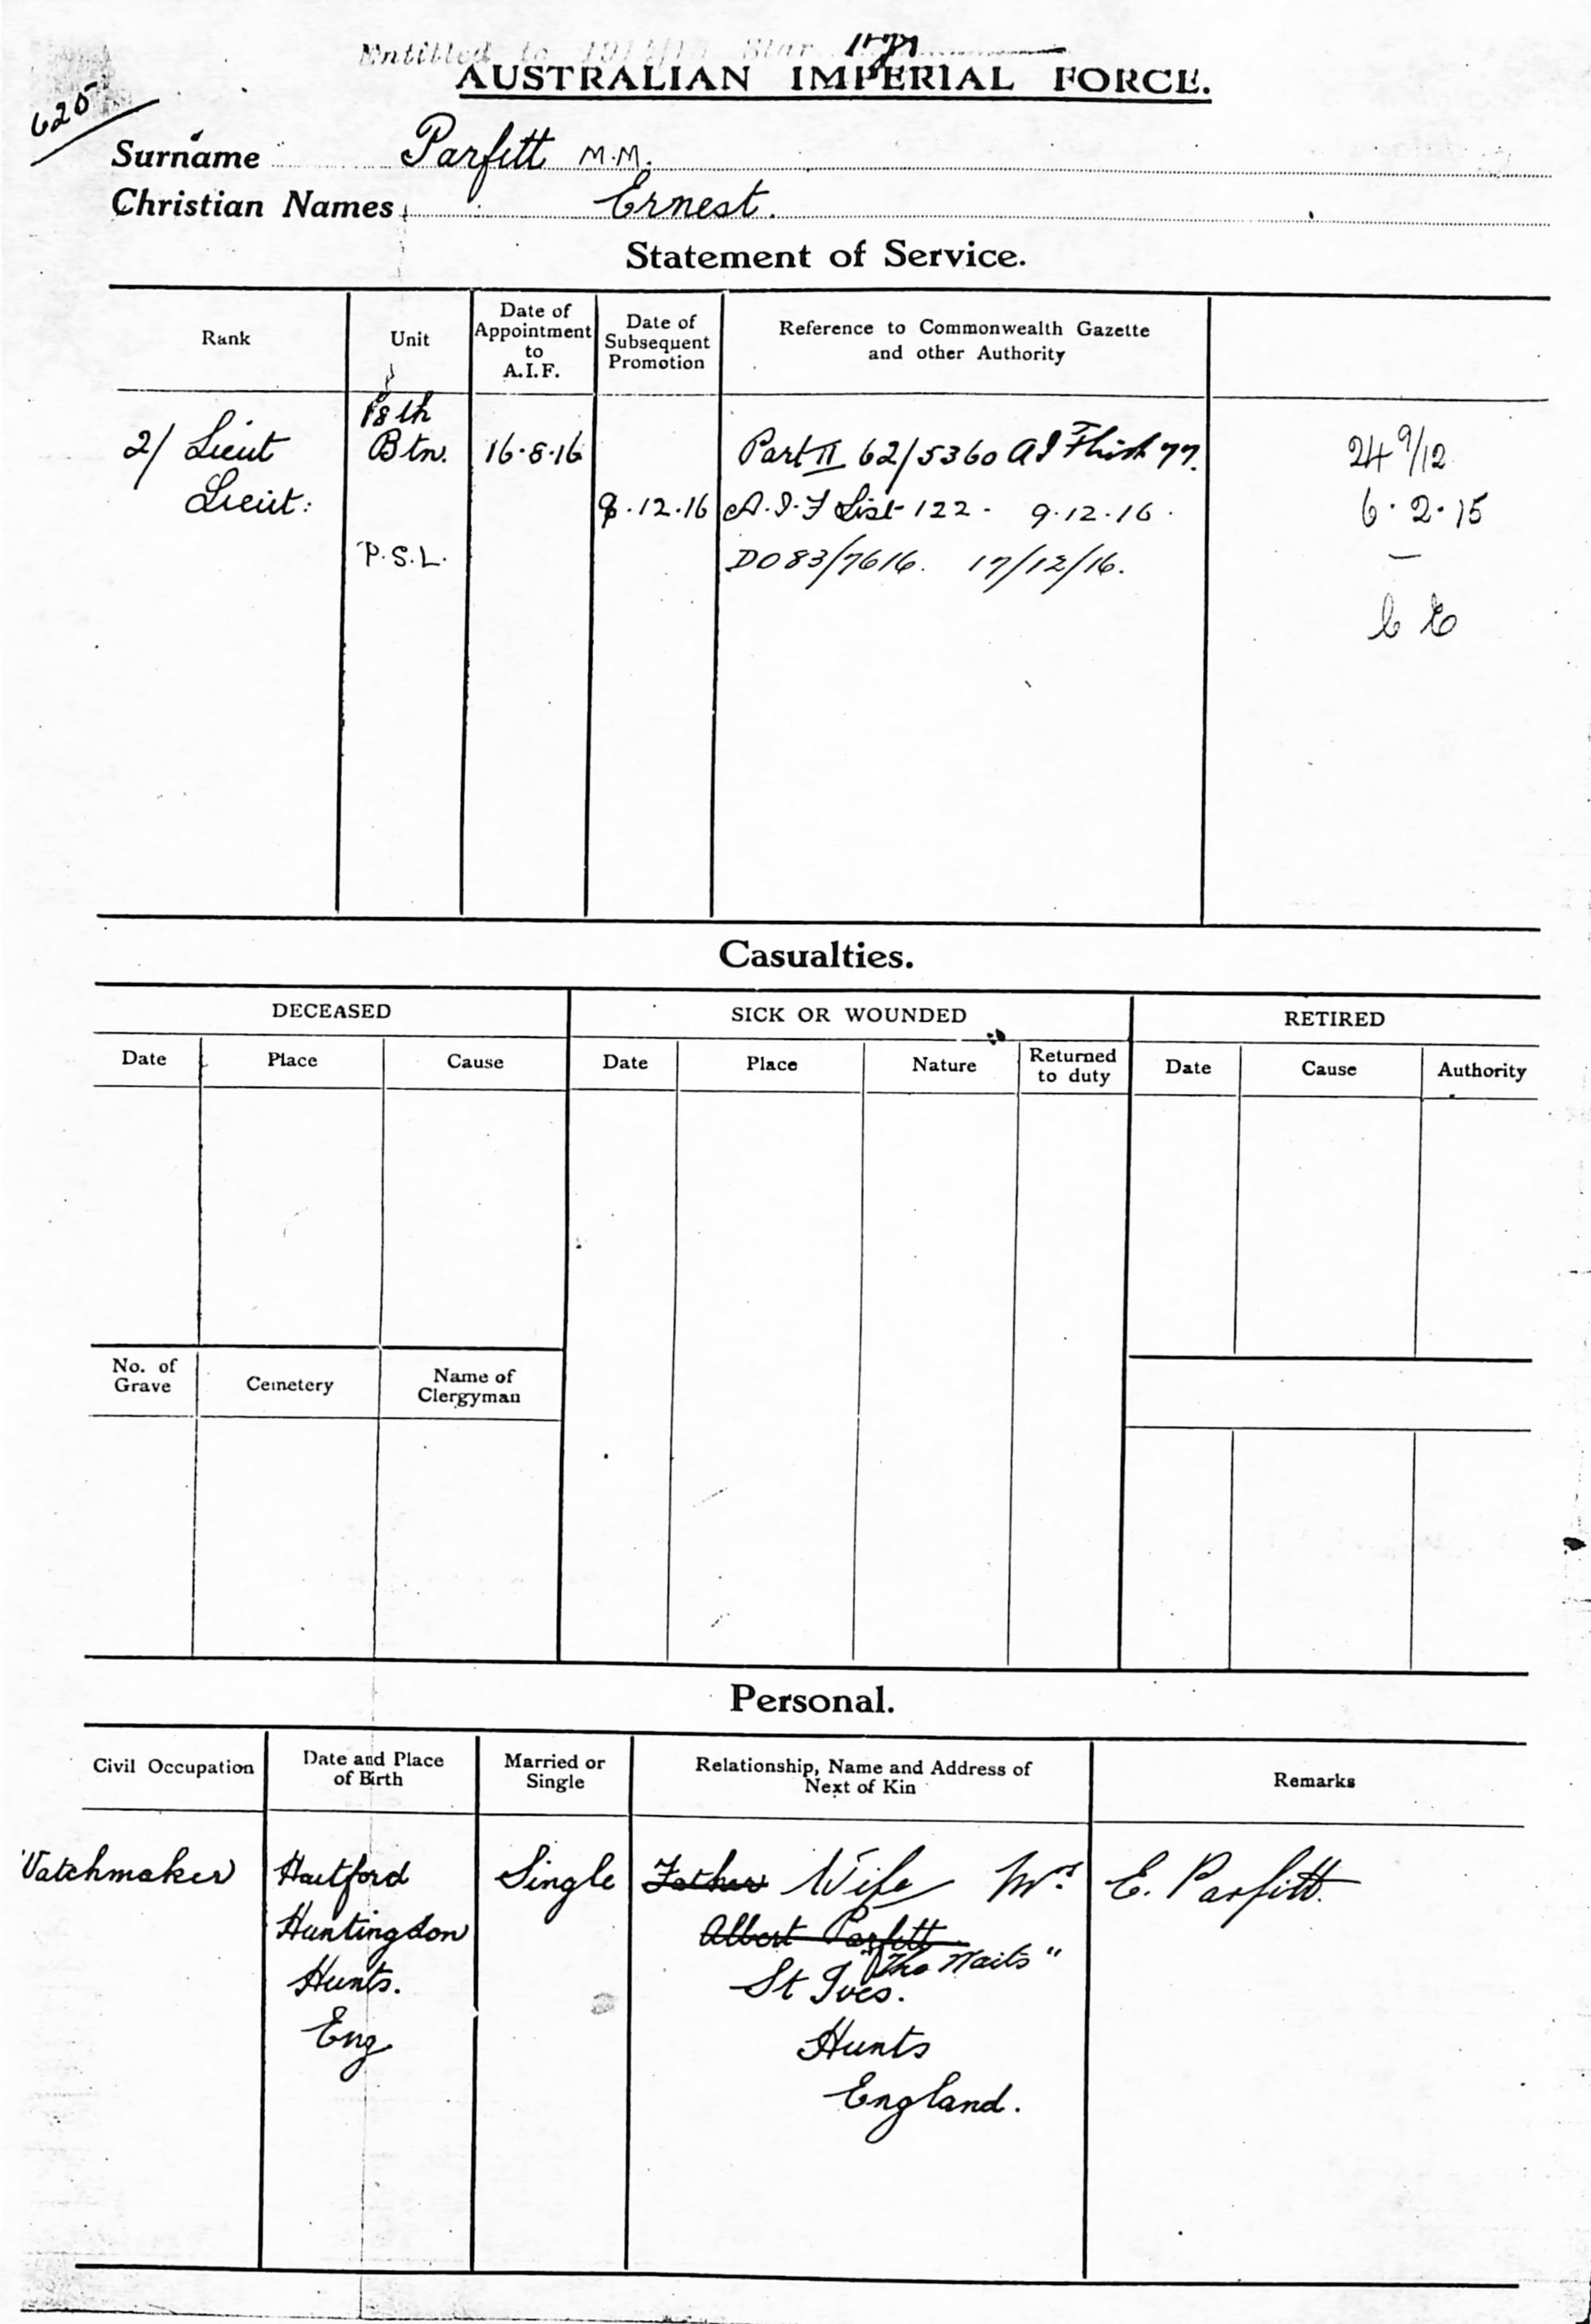 Entitled to 1914/15 Star
AUSTRALIAN IMPERIAL FORCE.
625
Surname Parfitt M.M.
Christian Names Ernest.
Statement of Service.
Rank Unit Date of Appointment to A.I.F. Date of Subsequent Promotion Reference to Commonwealth Gazette and other Authority
18th
2/ Lieut Btn. 16.8.16 Part II 62/5360 77. 24 9/12
Lieut: 9.12.16 A.I.F List 122. 9.12.16. 6.2.15
P.S.L. DO83/7616. 17/12/16. —
C E
Casualties.
DECEASED SICK OR WOUNDED RETIRED
Date Place Cause Date Place Nature Returned to duty Date Cause Authority
No. of Grave Cemetery Name of Clergyman
Personal.
Civil Occupation Date and Place of Birth Married or Single Relationship, Name and Address of Next of Kin Remarks
Watchmaker Hartford Single Father Wife Mrs E. Parfitt.
Huntingdon Albert Parfitt
"The Waits"
Hunts. St Ives.
Eng Hunts
England.